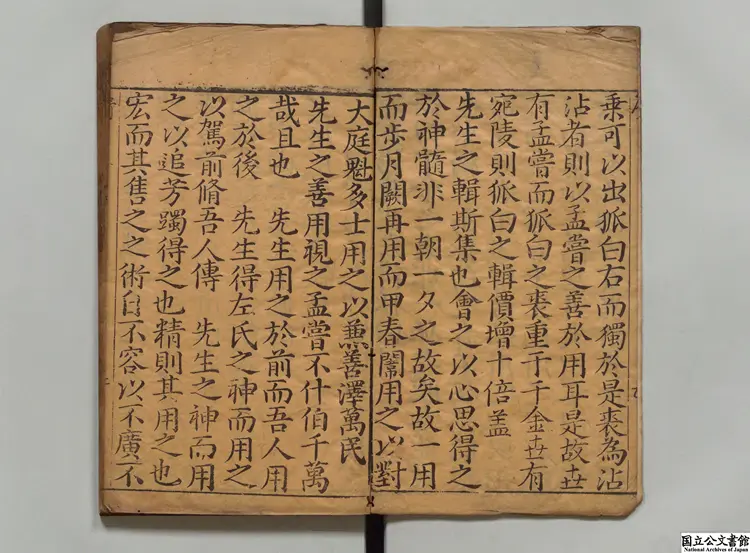 乗可以出狐白右而獨於是裘為沾
沾者則以孟嘗之善於用耳是故世
有孟嘗而狐白之裘重于千金世有
宛陵則狐白之輯價增十倍盖
先生之輯斯集也會之以心思得之
於神髓非一朝一夕之故矣故一用
而步月闕再用而甲春闈用之以對
大庭魁多士用之以兼善澤萬民
先生之善用視之孟嘗不什伯千萬
哉且也　先生用之於前而吾人用
之於後　先生得左氏之神而用之
以駕前脩吾人傳　先生之神而用
之以追芳躅得之也精則其用之也
宏而其售之之術自不容以不廣不
国立公文書館
National Archives of Japan